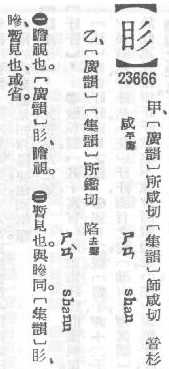 【䀐】
23666
甲、〔廣韻〕所咸切〔集韻〕師咸切 音杉
咸平聲 ㄕㄢ shan
乙、〔廣韻〕〔集韻〕所鑑切 陷去聲
ㄕㄢˋ shann
㊀瞻視也。〔廣韻〕䀐、瞻視。㊁暫見也。與㺑同。〔集韻〕䀐、
暫見也。或省。